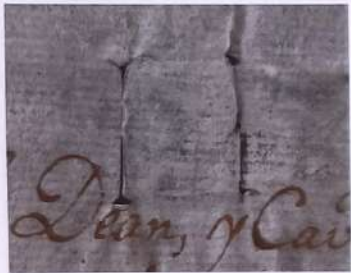 Dean, y Cav